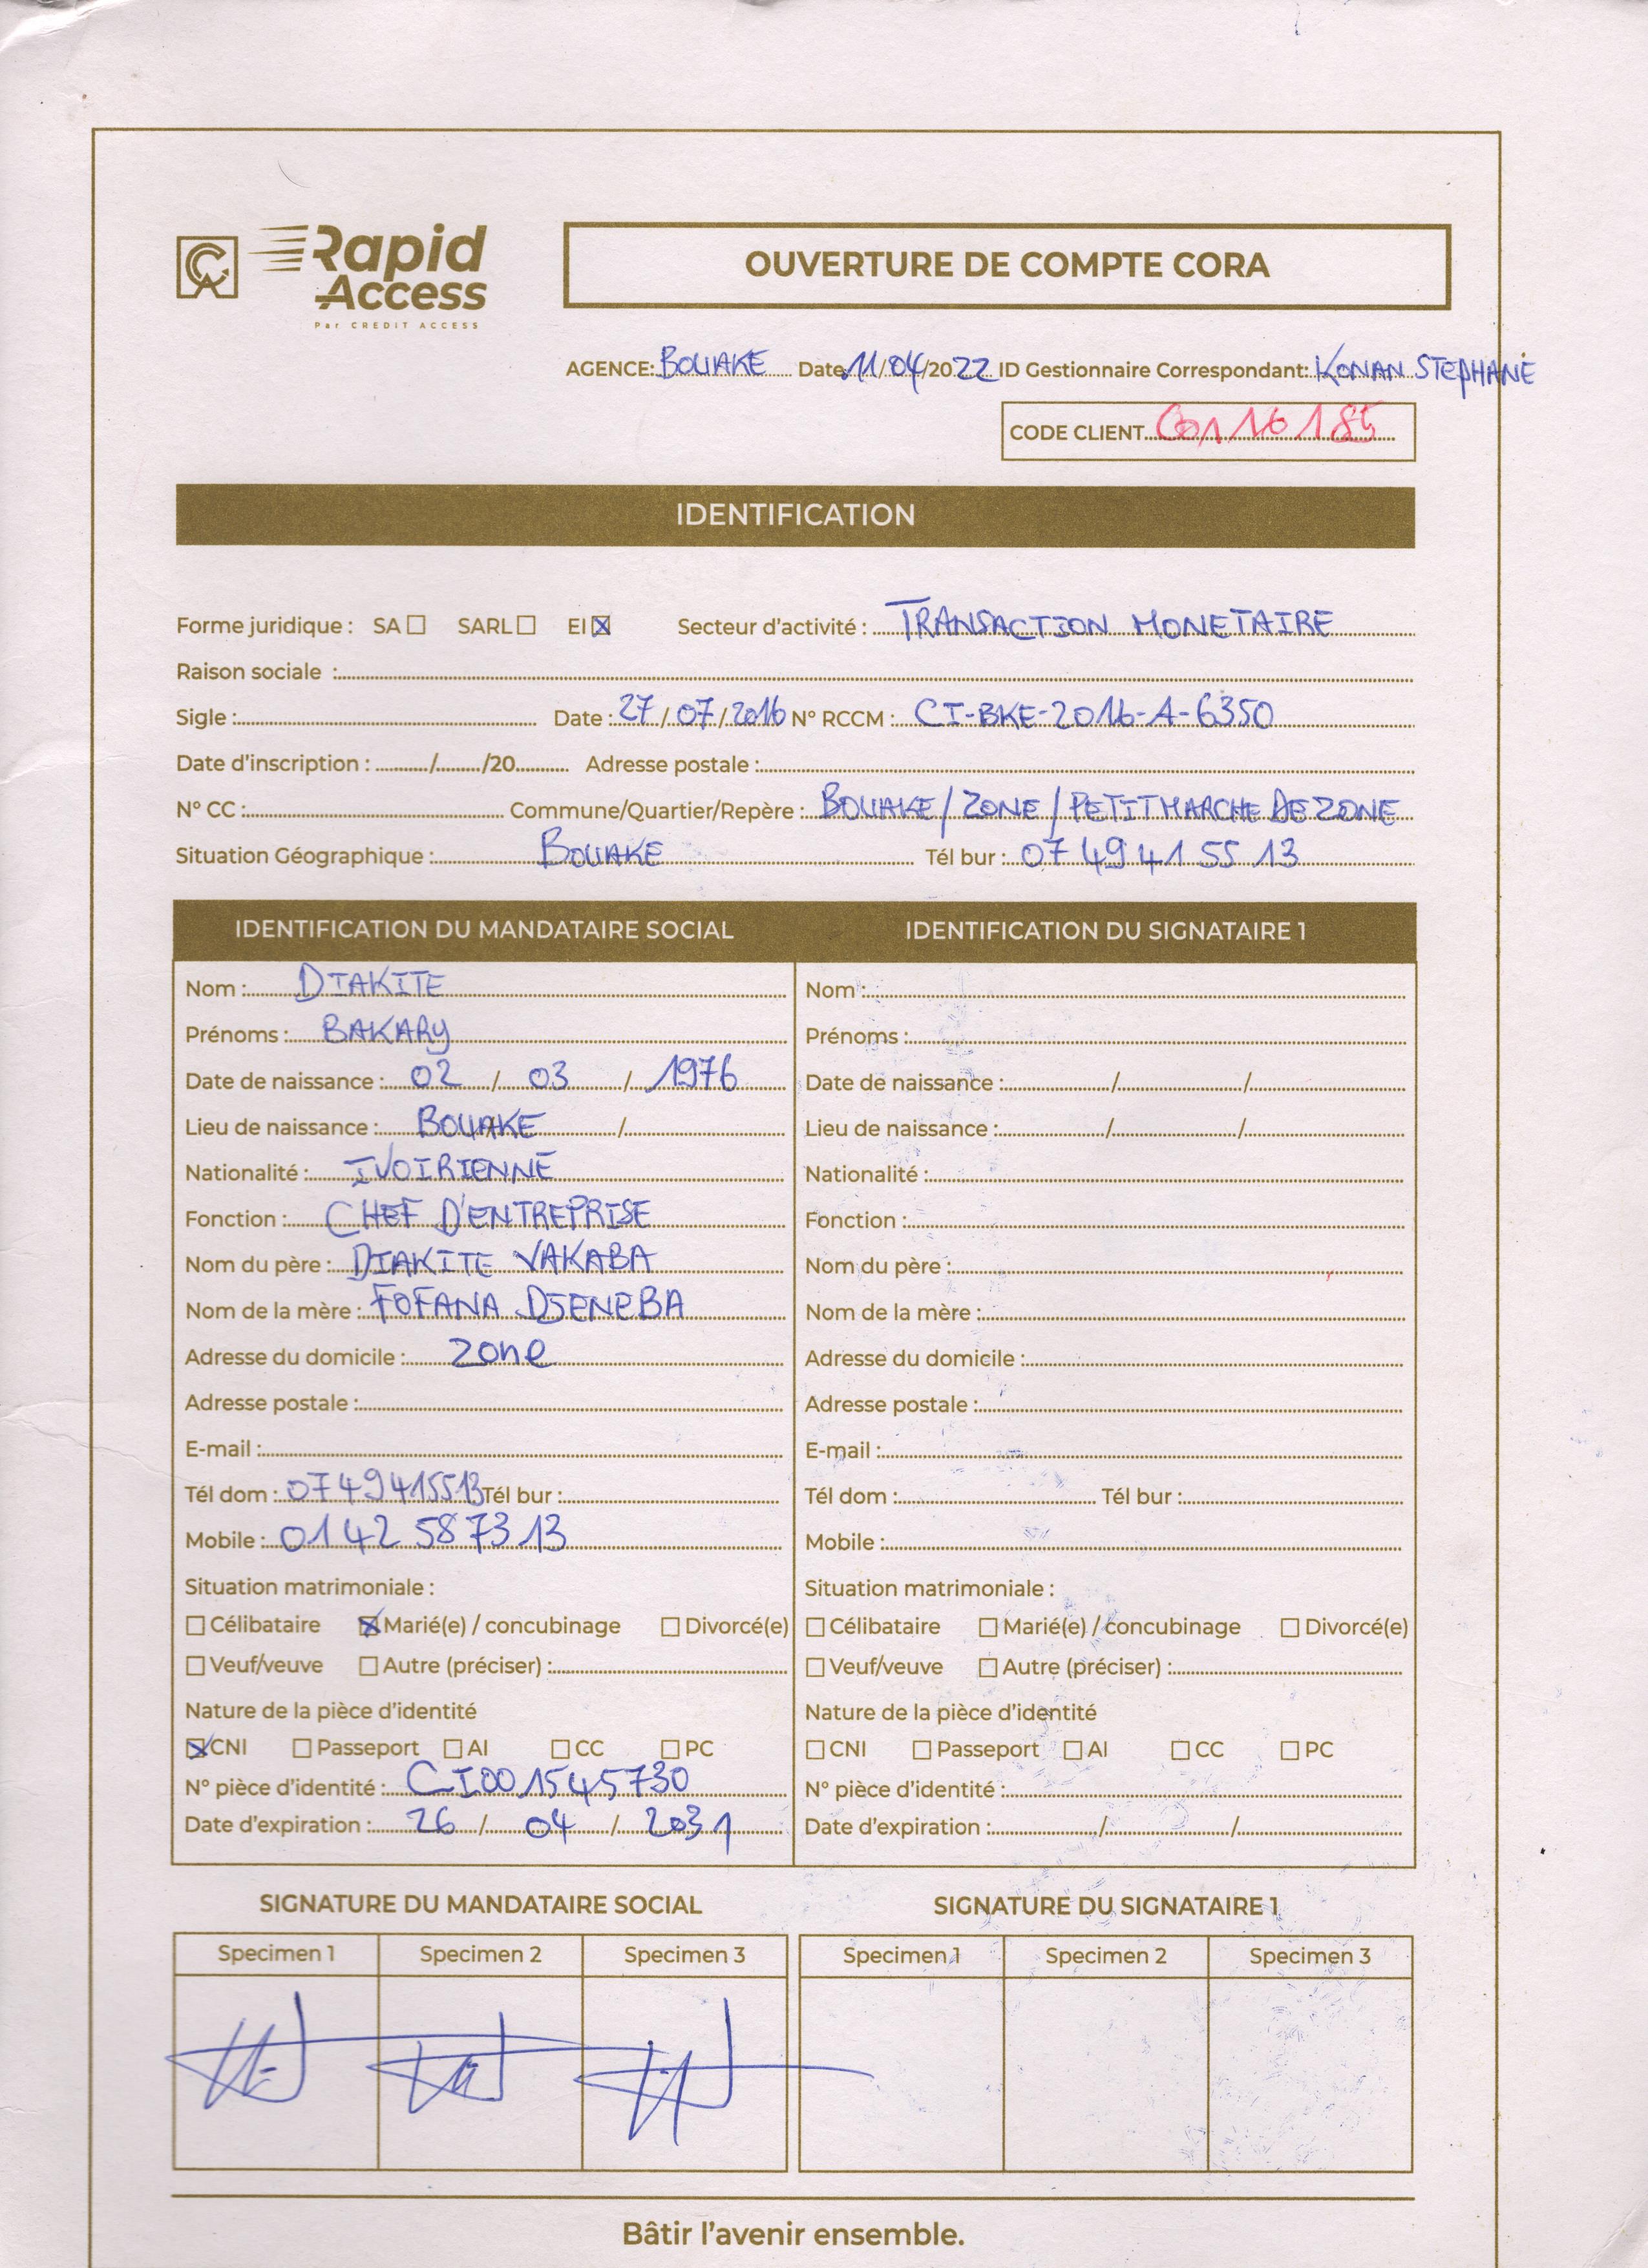 Rapid
Access
Par CREDIT ACCESS
OUVERTURE DE COMPTE CORA
AGENCE: BOUAKE Date 11/04/2022 ID Gestionnaire Correspondant: KONAN STEPHANE
CODE CLIENT C0116185
IDENTIFICATION
Forme juridique : SA ☐ SARL ☐ EI ☒ Secteur d'activité : TRANSACTION MONETAIRE
Raison sociale :
Sigle : Date : 27/07/2016 N° RCCM : CI-BKE-2016-A-6350
Date d'inscription : / /20 Adresse postale :
N° CC : Commune/Quartier/Repère : BOUAKE/ZONE/PETIT MARCHE DE ZONE
Situation Géographique : BOUAKE Tél bur : 07 49 41 55 13
IDENTIFICATION DU MANDATAIRE SOCIAL
Nom : DIAKITE
Prénoms : BAKARY
Date de naissance : 02 / 03 / 1976
Lieu de naissance : BOUAKE /
Nationalité : IVOIRIENNE
Fonction : CHEF D'ENTREPRISE
Nom du père : DIAKITE VAKABA
Nom de la mère : FOFANA DJENEBA
Adresse du domicile : zone
Adresse postale :
E-mail :
Tél dom : 0749415513 Tél bur :
Mobile : 01 42 58 73 13
Situation matrimoniale :
☐ Célibataire ☒ Marié(e) / concubinage ☐ Divorcé(e)
☐ Veuf/veuve ☐ Autre (préciser) :
Nature de la pièce d'identité
☒ CNI ☐ Passeport ☐ AI ☐ CC ☐ PC
N° pièce d'identité : CI001545730
Date d'expiration : 26 / 04 / 2031
IDENTIFICATION DU SIGNATAIRE 1
Nom :
Prénoms :
Date de naissance : / /
Lieu de naissance : / /
Nationalité :
Fonction :
Nom du père :
Nom de la mère :
Adresse du domicile :
Adresse postale :
E-mail :
Tél dom : Tél bur :
Mobile :
Situation matrimoniale :
☐ Célibataire ☐ Marié(e) / concubinage ☐ Divorcé(e)
☐ Veuf/veuve ☐ Autre (préciser) :
Nature de la pièce d'identité
☐ CNI ☐ Passeport ☐ AI ☐ CC ☐ PC
N° pièce d'identité :
Date d'expiration : / /
SIGNATURE DU MANDATAIRE SOCIAL
Specimen 1 Specimen 2 Specimen 3
SIGNATURE DU SIGNATAIRE 1
Specimen 1 Specimen 2 Specimen 3
Bâtir l'avenir ensemble.